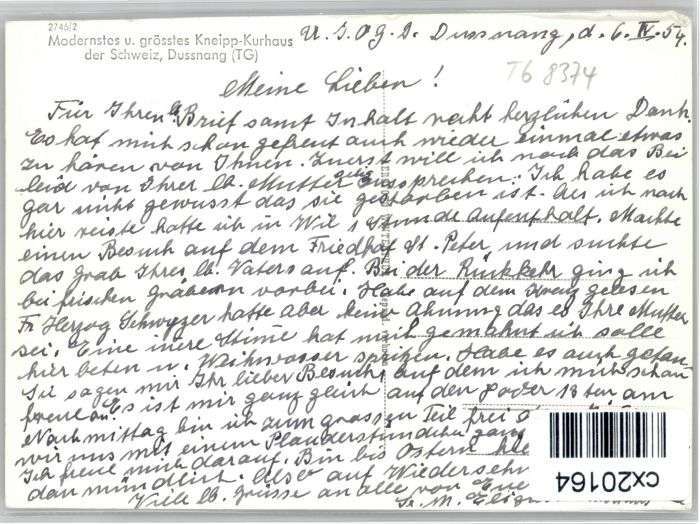 2746/2
Modernstes u. grösstes Kneipp-Kurhaus
der Schweiz, Dussnang (TG)
U. I. Og. D. Dussnang, d. 6. IV. 54.
T6 8374
Meine Lieben!
Für Ihren lb. Brief samt Inhalt recht herzlichen Dank.
Es hat mich schon gefreut auch wieder einmal etwas
zu hören von Ihnen. Zuerst will ich noch das Bei
leid von Ihrer lb. Mutter selig aussprechen. Ich habe es
gar nicht gewusst das sie gestorben ist. Als ich nach
hier reiste hatte ich in Wil 1 Stunde Aufenthalt. Machte
einen Besuch auf dem Friedhof St. Peter, und suchte
das Grab Ihres lb. Vaters auf. Bei der Rückkehr ging ich
bei frischen gräbern vorbei. Habe auf dem Kreuz gelesen
Fr. Herzog Schwyzer hatte aber keine Ahnung das es Ihre Mutter
sei. Eine inere Stime hat mich gemahnt ich solle
hier beten u. Weihwasser spritzen. Habe es auch getan
Sie sagen mir Ihr lieber Besuch auf dem ich mich schon
freue an. Es ist mir ganz gleich auf den 8 oder 18 ten am
Nachmittag bin ich zum grossen Teil frei
wir uns mit einem Plauderstündchen
Ich freue mich darauf. Bin bis Ostern
dan mündlich. Also auf Wiedersehn
Viele lb. Grüsse an alle von
Sr. M.
cx20164